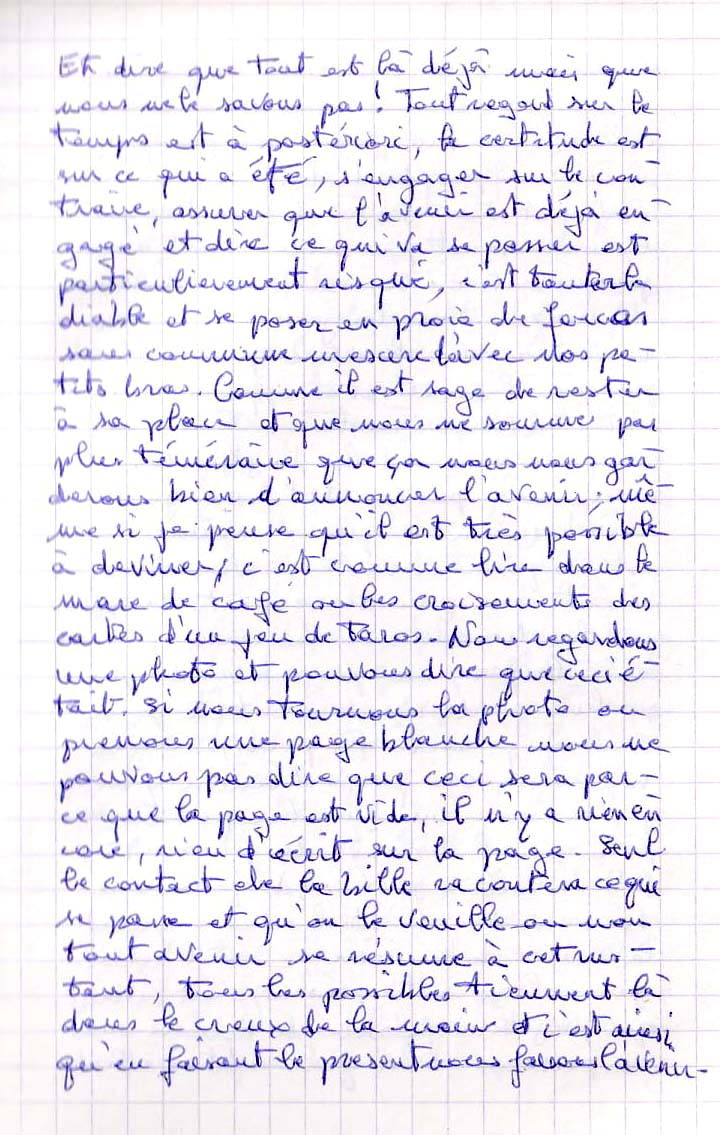 Et dire que tout est là déjà mais que
nous ne le savons pas! Tout regard sur le
temps est à postériori, la certitude est
sur ce qui a été, s'engager sur le con-
traire, assurer que l'avenir est déjà en-
gagé et dire ce qui va se passer est
particulièrement risqué, c'est tenter le
diable et se poser en proie de forces
sans commune mesure avec nos pe-
tits bras. Comme il est sage de rester
à sa place et que nous ne sommes pas
plus téméraire que ça nous nous gar-
derons bien d'annoncer l'avenir; mê-
me si je pense qu'il est très possible
à deviner, c'est comme lire dans le
marc de café ou les croisements des
cartes d'un jeu de taros. Nous regardons
une photo et pouvons dire que ceci é-
tait. Si nous tournons la photo ou
prenons une page blanche nous ne
pouvons pas dire que ceci sera par-
ce que la page est vide, il n'y a rien en
core, rien d'écrit sur la page. Seul
le contact de la bille racontera ce qui
se passe et qu'on le veuille ou non
tout avenir se résume à cet ins-
tant, tous les possibles tiennent là
dans le creux de la main et c'est ainsi
qu'en faisant le present nous faisons l'avenir-